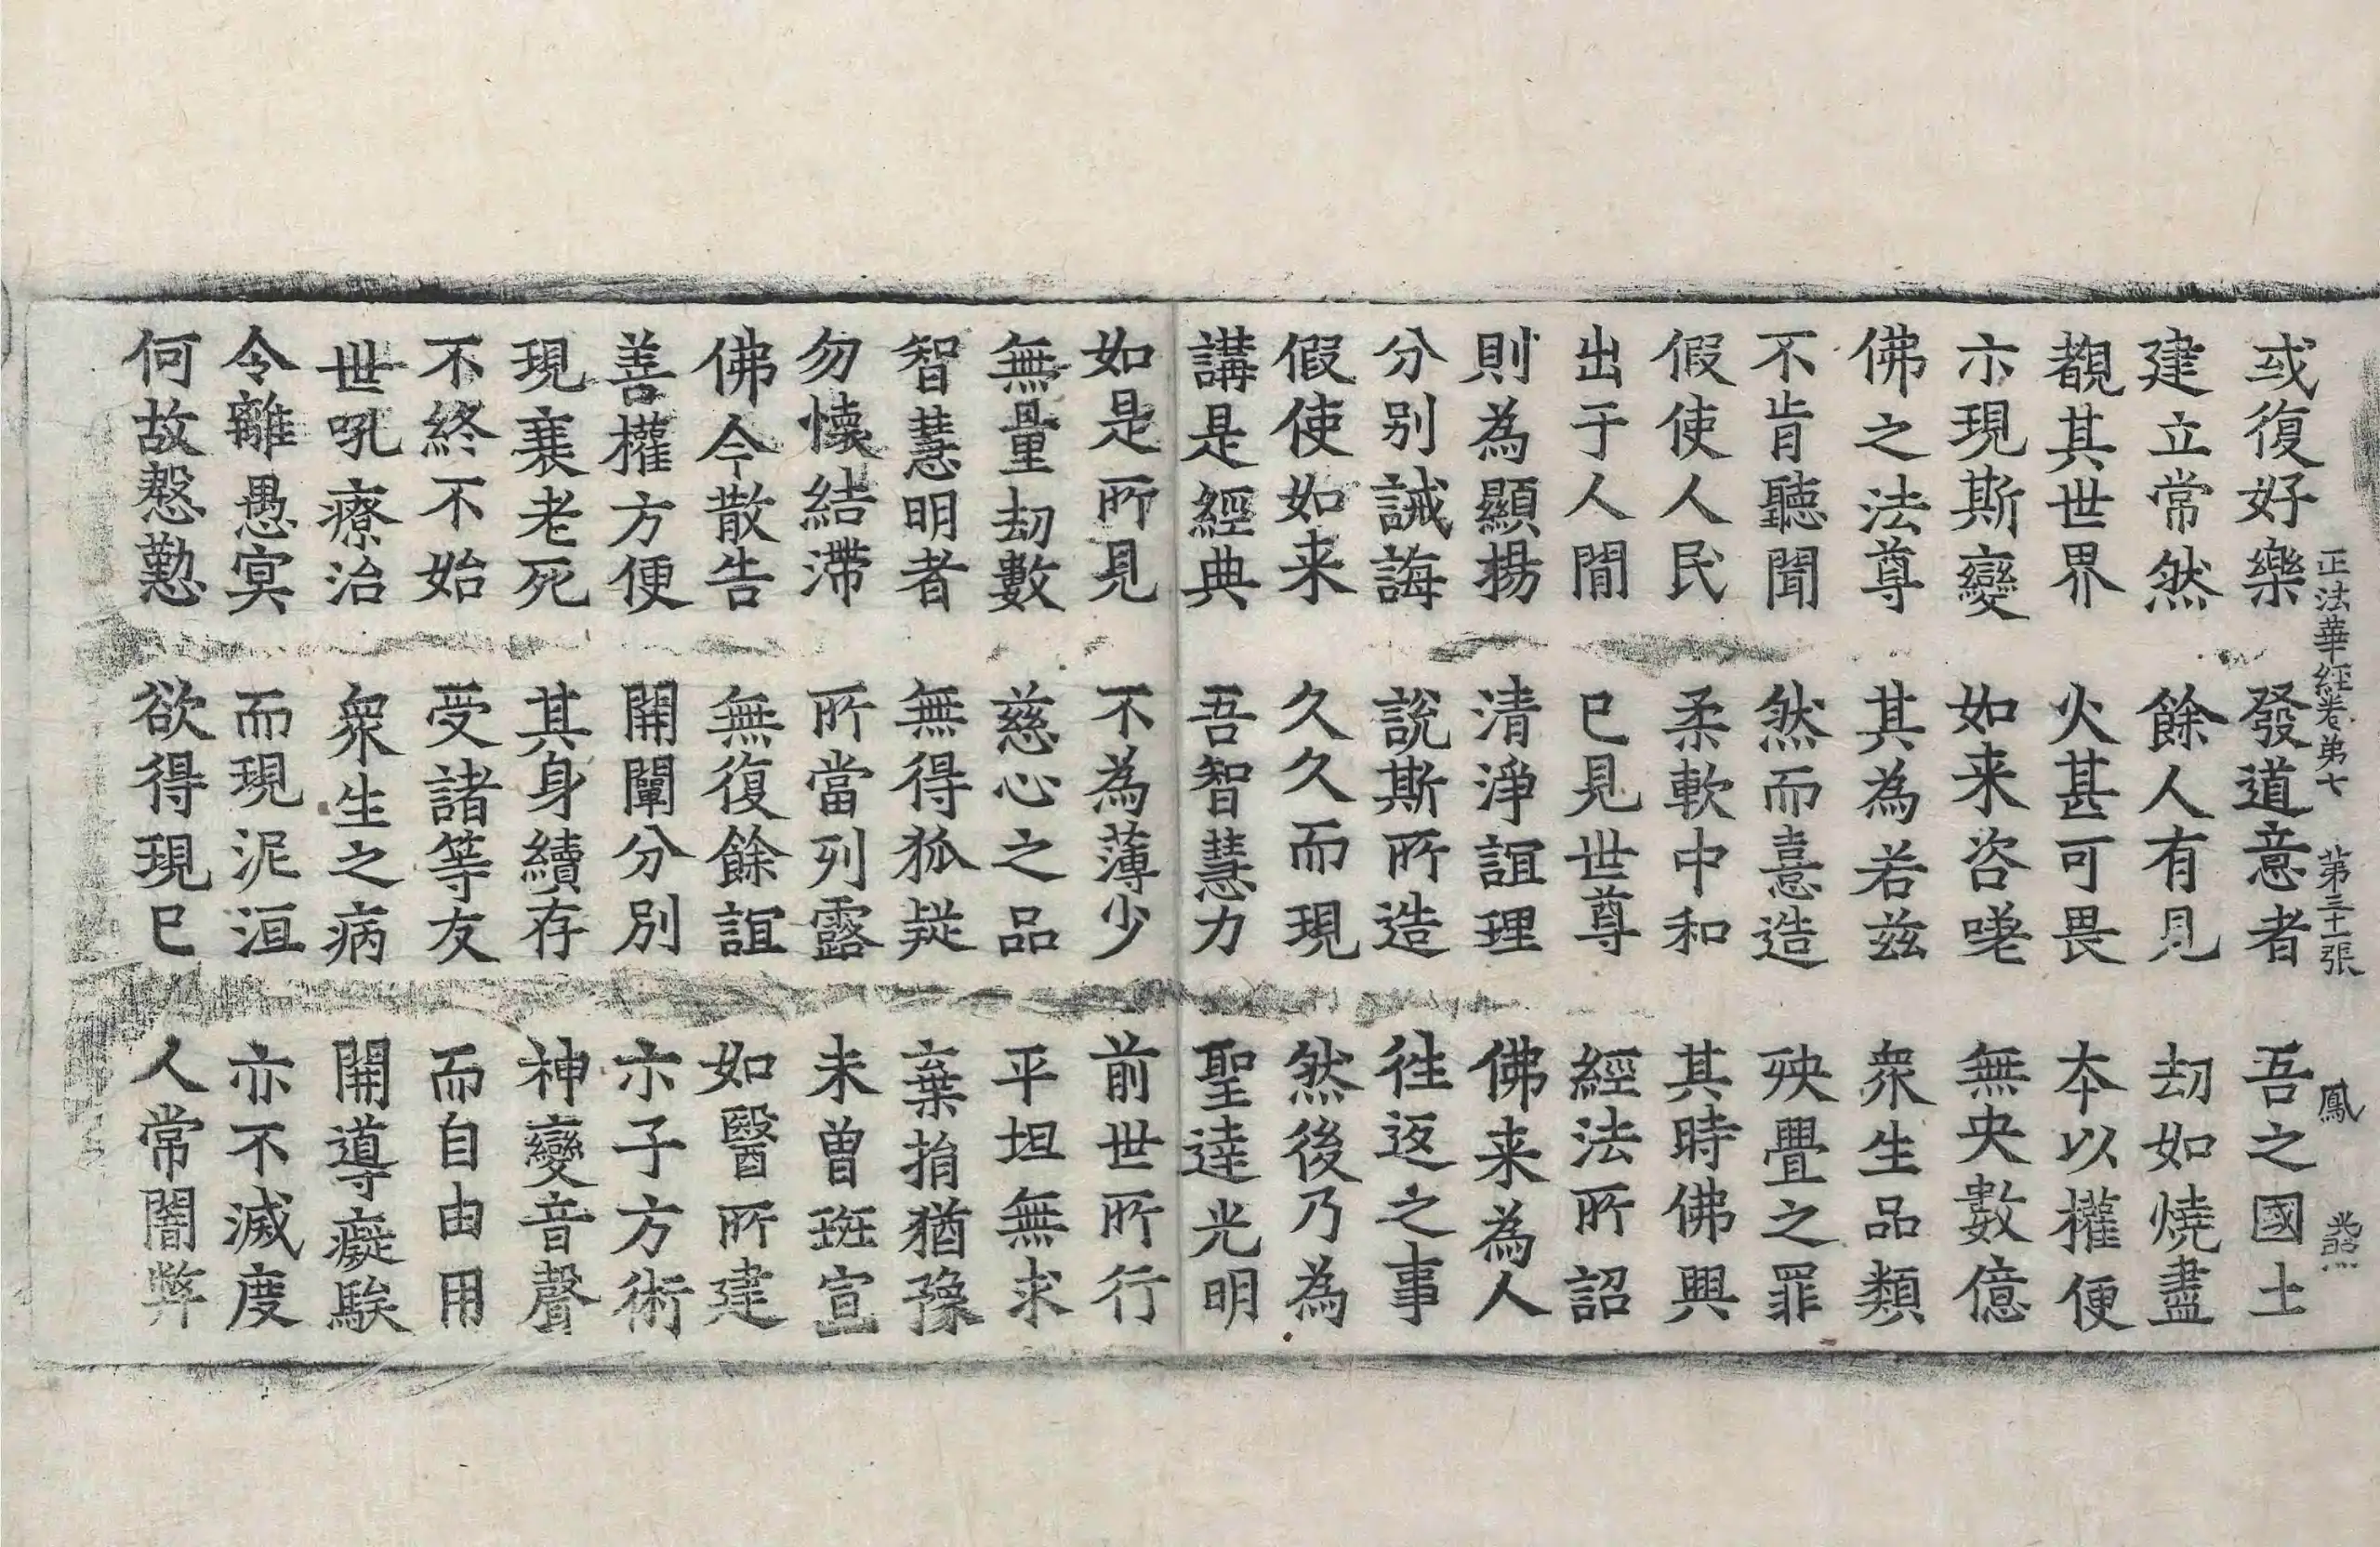 正法華經卷第七　第三十張　鳳　熙
或復好樂　發道意者　吾之國土
建立常然　餘人有見　劫如燒盡
覩其世界　火甚可畏　本以權便
亦現斯變　如来咨嗟　無央數億
佛之法尊　其為若茲　眾生品類
不肯聽聞　然而憙造　殃疊之罪
假使人民　柔軟中和　其時佛興
出于人間　已見世尊　經法所詔
則為顯揚　清淨誼理　佛来為人
分别誡誨　說斯所造　往返之事
假使如来　久久而現　然後乃為
講是經典　吾智慧力　聖達光明
如是所見　不為薄少　前世所行
無量劫數　慈心之品　平坦無求
智慧明者　無得狐疑　棄捐猶豫
勿懐結滯　所當列露　未曾班宣
佛今散告　無復餘誼　如醫所建
善權方便　開闡分別　亦子方術
現衰老死　其身續存　神變音聲
不終不始　受諸等友　而自由用
世吼療治　眾生之病　開導癡騃
令離愚冥　而現泥洹　亦不滅度
何故慇懃　欲得現已　人常闇弊